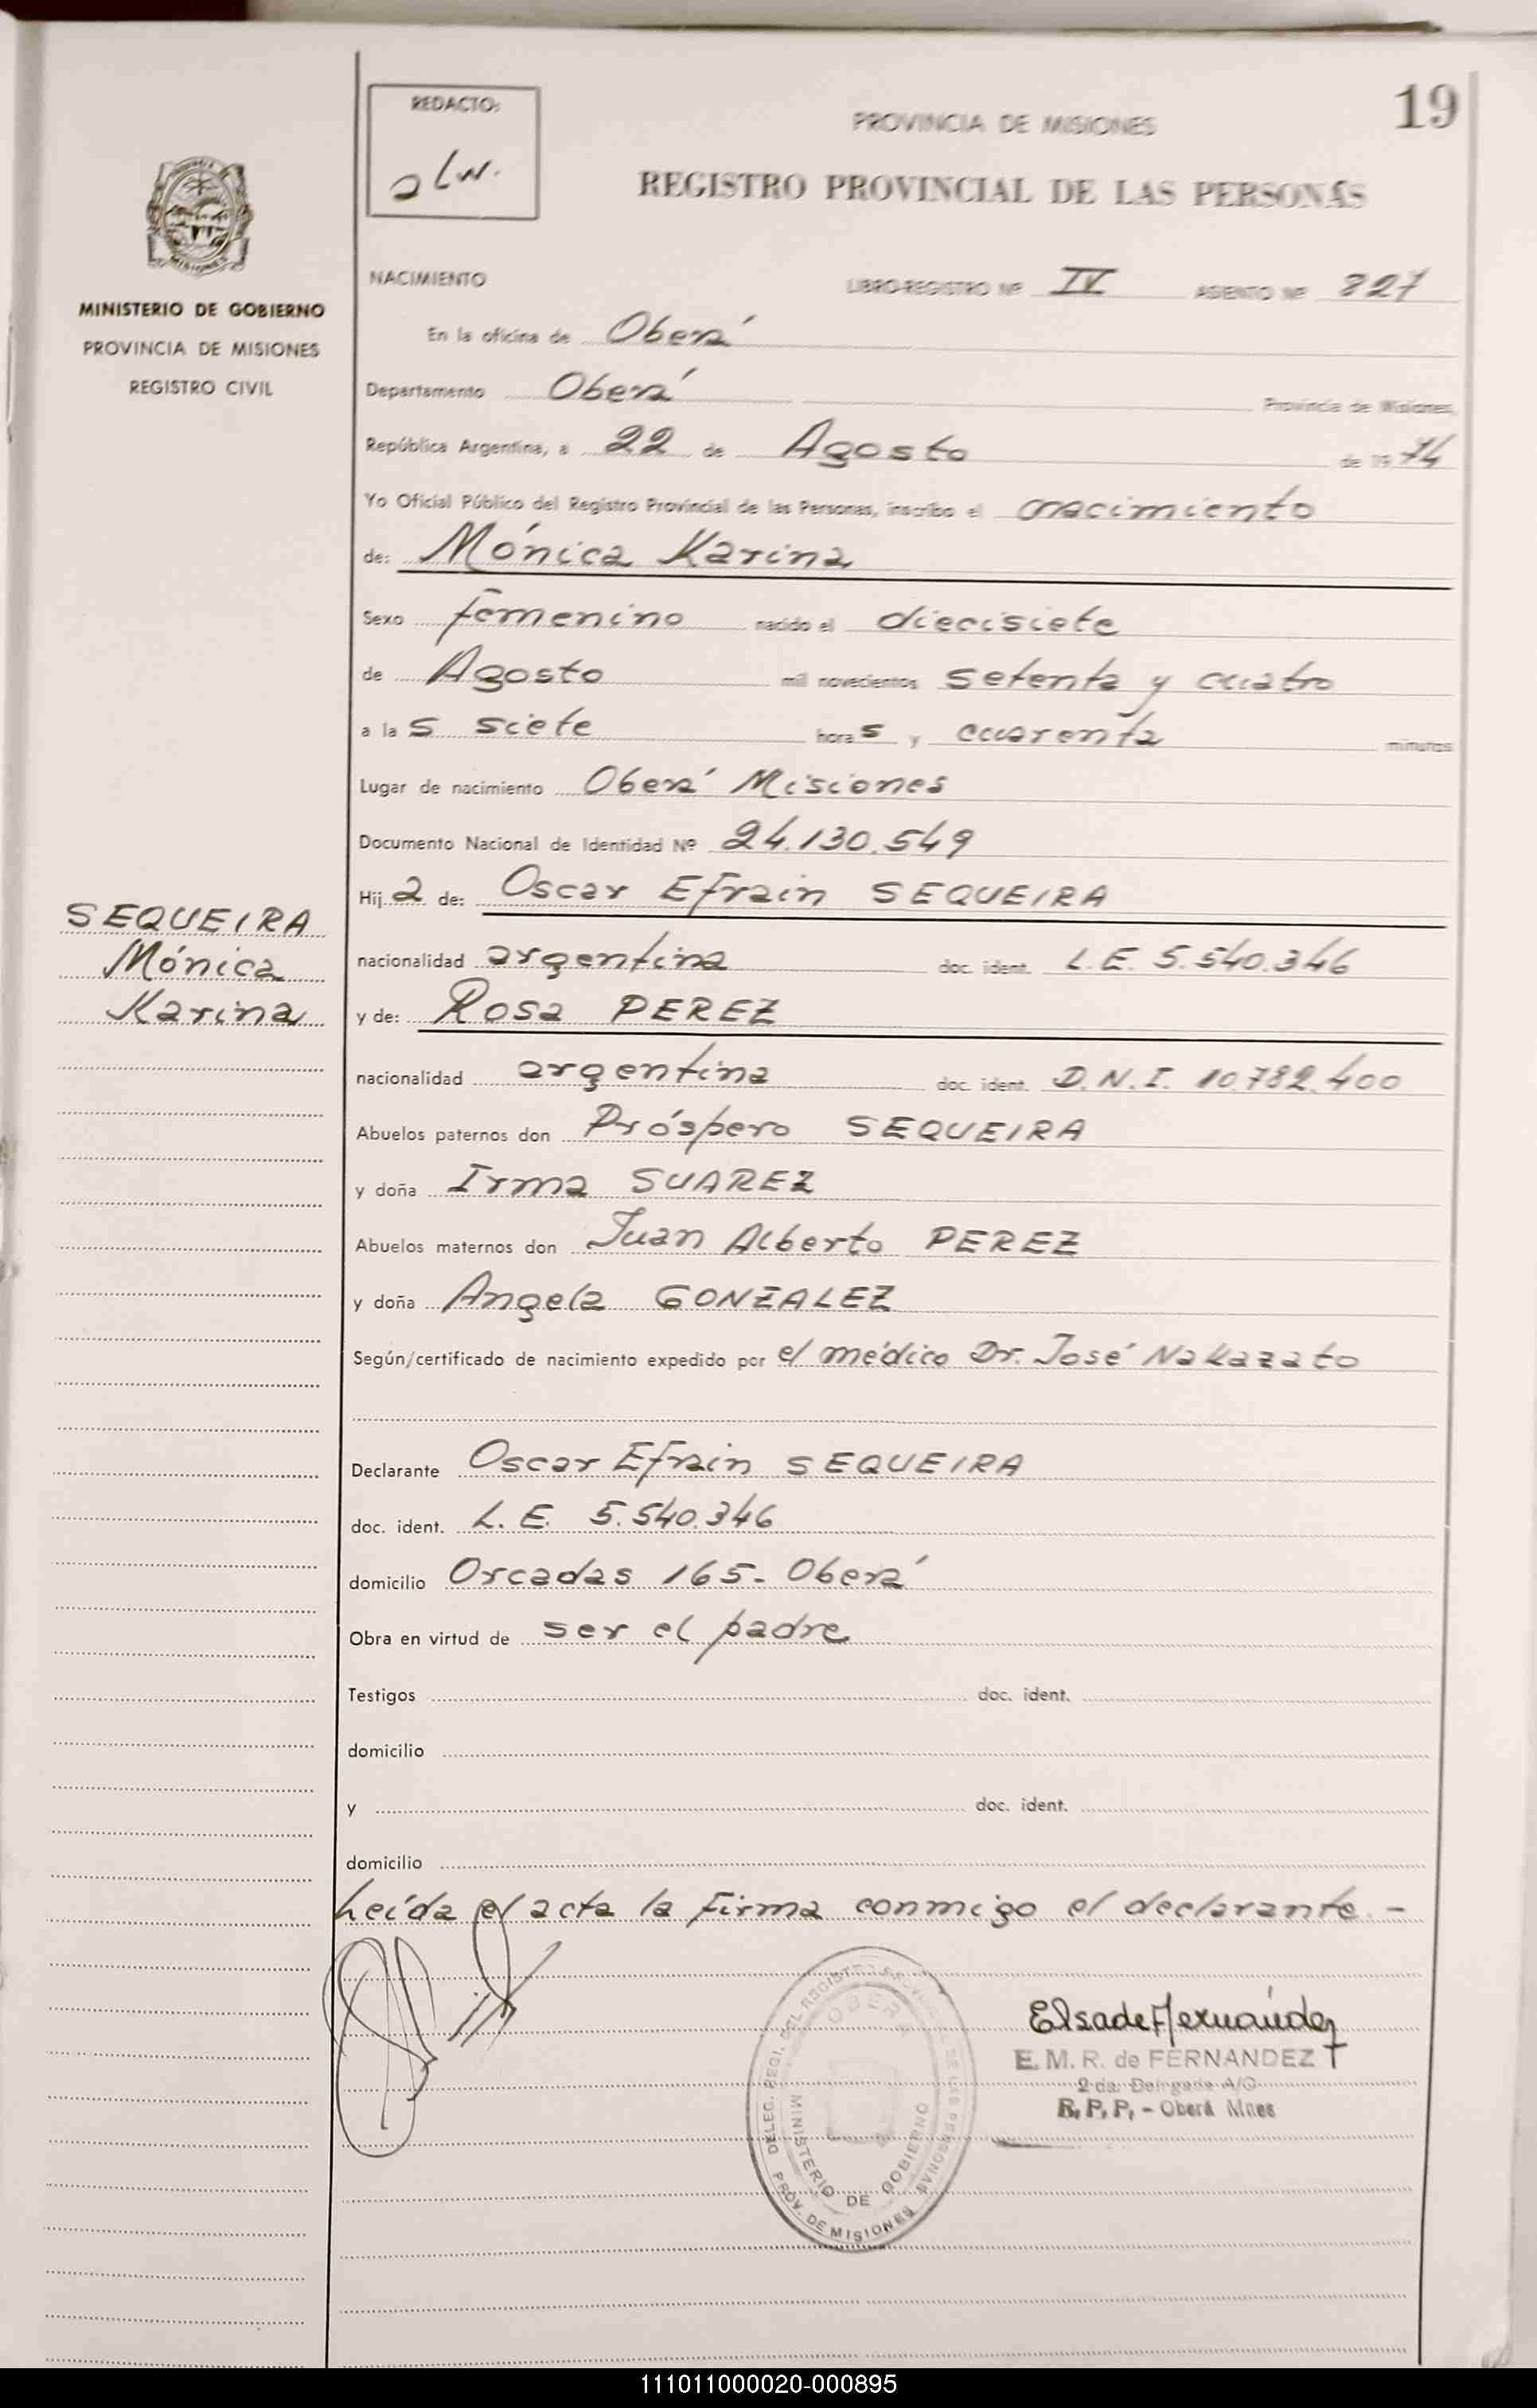 19
REDACTO:
PROVINCIA DE MISIONES
REGISTRO PROVINCIAL DE LAS PERSONAS
MINISTERIO DE GOBIERNO
PROVINCIA DE MISIONES
REGISTRO CIVIL
NACIMIENTO LIBRO-REGISTRO Nº IV ASIENTO Nº 827
En la oficina de Oberá
Departamento Oberá Provincia de Misiones,
República Argentina, a 22 de Agosto de 1974
Yo Oficial Público del Registro Provincial de las Personas, inscribo el nacimiento
de: Mónica Karina
Sexo femenino nacido el diecisiete
de Agosto mil novecientos setenta y cuatro
a las siete horas y cuarenta minutos
Lugar de nacimiento Oberá Misiones
Documento Nacional de Identidad Nº 24.130.549
Hija de: Oscar Efrain SEQUEIRA
SEQUEIRA
Mónica
Karina
nacionalidad argentina doc. ident. L.E. 5.540.346
y de: Rosa PEREZ
nacionalidad argentina doc. ident. D.N.I. 10.782.400
Abuelos paternos don Próspero SEQUEIRA
y doña Irma SUAREZ
Abuelos maternos don Juan Alberto PEREZ
y doña Angela GONZALEZ
Según/certificado de nacimiento expedido por el médico Dr. José Nakazato
Declarante Oscar Efrain SEQUEIRA
doc. ident. L.E. 5.540.346
domicilio Orcadas 165- Oberá
Obra en virtud de ser el padre
Testigos doc. ident.
domicilio
y doc. ident.
domicilio
Leída el acta la firma conmigo el declarante.-
OBERA
MINISTERIO DE GOBIERNO
PROV. DE MISIONES
Elsa de Fernández
E. M. R. de FERNANDEZ
2da. Delegada A/C
R. P. P. - Oberá Mnes
111011000020-000895